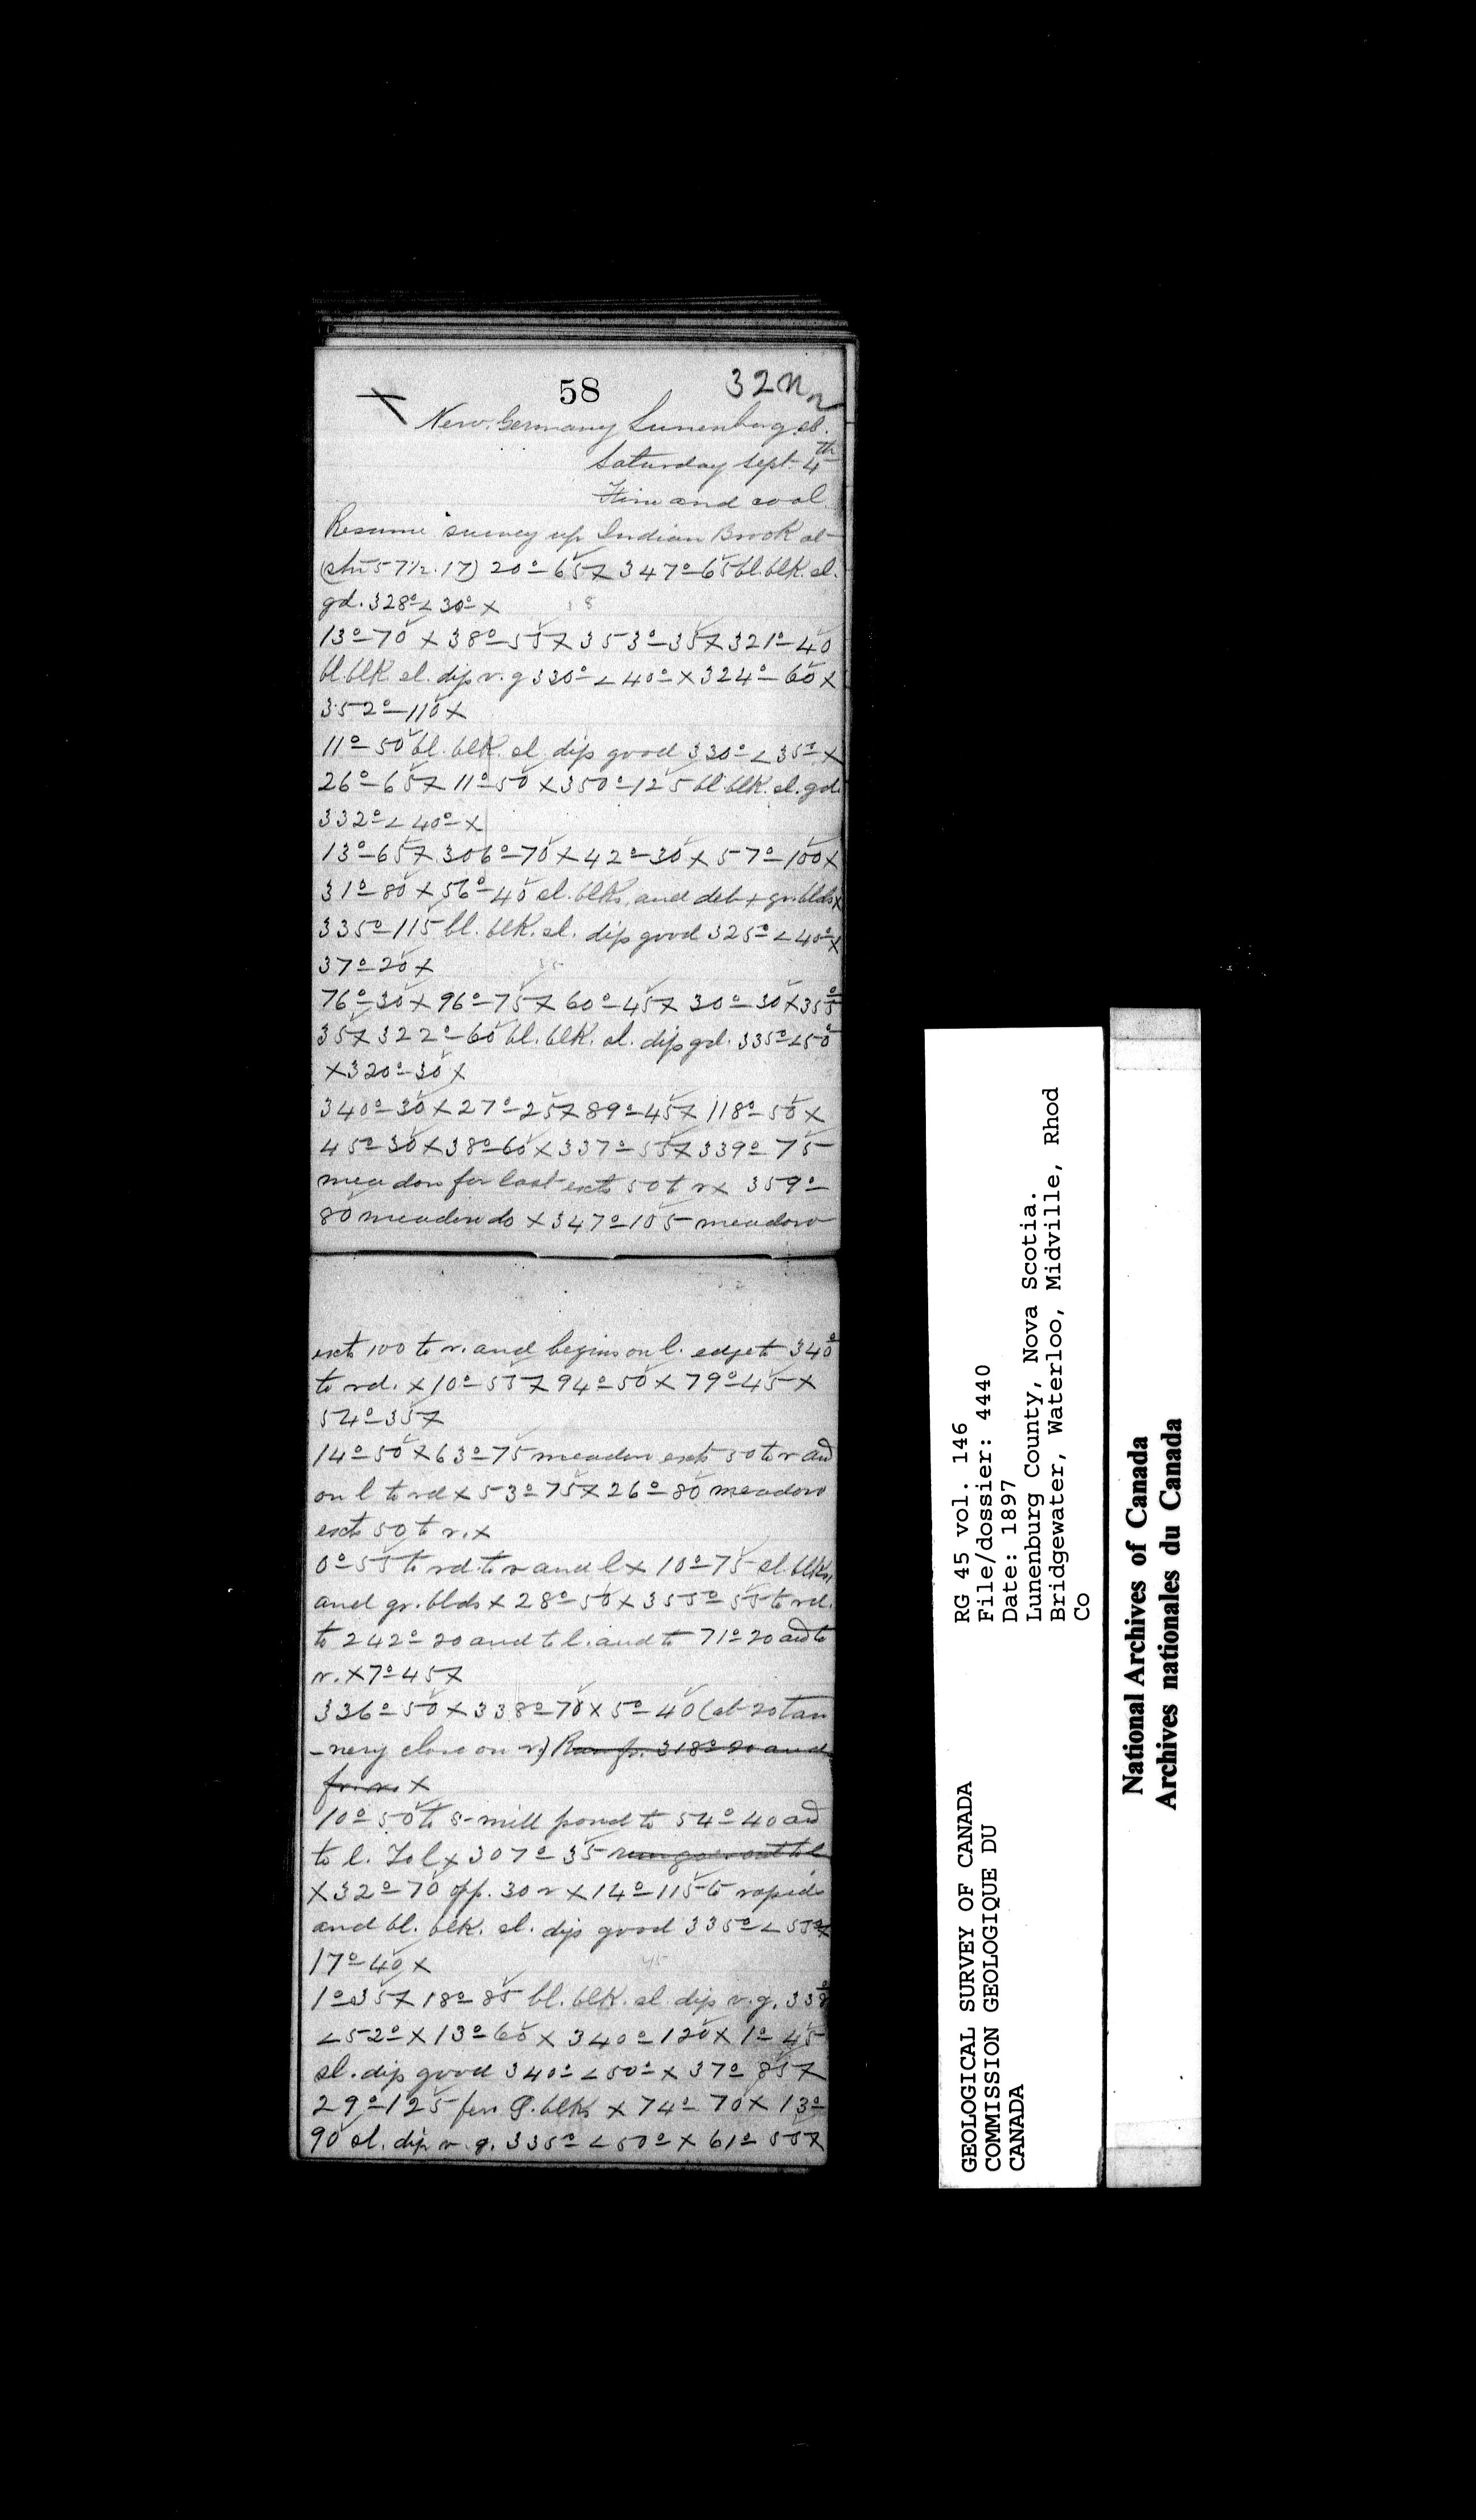 58
32
New Germany Lunenburg co.
Saturday Sept 4th
Fine and cool.
Resume survey up Indian Brook at
(stn 57 1/2. 17) 20°-65 X 347°-65 bl. blk. sl.
gd. 328° < 30° X
13°-70 X 38°-55 X 353°-35 X 321°-40
bl blk sl. dip v. g 330° < 40° X 324°-60 X
352°-110 X
11°-50 bl. blk. sl. dip good 330° < 35° X
26°-65 X 11°-50 X 350°-125 bl blk. sl. gd.
332° < 40° X
13°-65 X 306°-70 X 42°-30 X 57°-100 X
31°-80 X 56°-40 sl. blks. and deb + gr. blds X
335°-115 bl. blk. sl. dip good 325° < 40° X
37°-20 X
76°-30 X 96°-75 X 60°-45 X 30°-30 X 355°
35 X 322°-60 bl. blk. sl. dip gd. 335° < 50°
X 320°-30 X
340°-30 X 27°-25 X 89°-45 X 118°-50 X
45°-30 X 38°-60 X 337°-55 X 339°-75
meadow for last exts 50 to r X 359°-
80 meadow do X 347°-105 meadow
exts 100 to r. and begins on l. edge to 340°
to rd. X 10°-55 X 94°-50 X 79°-45 X
54°-35 X
14°-50 X 63°-75 meadow exts 50 to r and
on l to rd X 53°-75 X 26°-80 meadow
exts 50 to r. X
0°-55 to rd. to r and l X 10°-75 sl. blks,
and gr. blds X 28°-50 X 355°-55 to rd.
to 242°-20 and to l. and to 71°-20 and to
r. X 7°-45 X
336°-50 X 338°-70 X 5°-40 (at 20 tan
-nery close on r) Run fr. 318°-20 and
fr. r. X
10°-50 to s-mill pond to 54°-40 and
to l. To l X 307°-35 run goes out to l
X 32°-70 opp. 30 r X 14°-115 to rapids
and bl. blk. sl. dip good 335° < 55° X
17°-40 X
1°-35 X 18°-85 bl. blk. sl. dip v. g. 338°
< 52° X 13°-60 X 340°-120 X 1°-45
sl. dip good 340° < 50° X 37°-85 X
29°-125 few q. blks X 74°-70 X 13°-
90 sl. dip v. g. 335° < 50° X 61°-55 X
GEOLOGICAL SURVEY OF CANADA
COMMISSION GEOLOGIQUE DU
CANADA
RG 45 vol. 146
File/dossier: 4440
Date: 1897
Lunenburg County, Nova Scotia.
Bridgewater, Waterloo, Midville, Rhod
Co
National Archives of Canada
Archives nationales du Canada